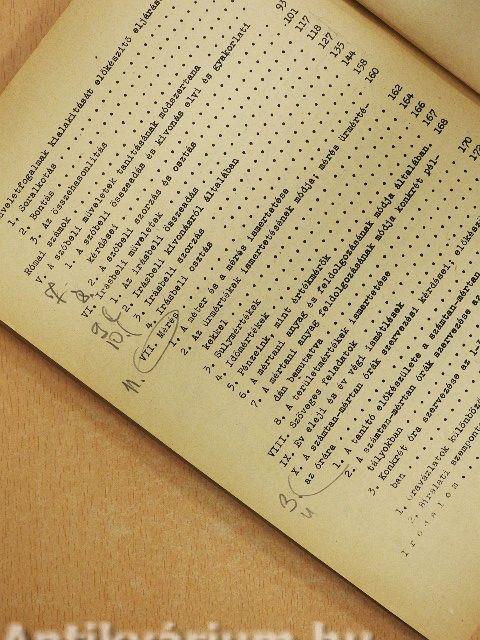 műveletfogalmak kialakítását előkészítő eljárás
1. Soralkotás
2. Bontás
3. Az összehasonlítás 93
Római számok 101
V. A szóbeli műveletek tanításának módszertana 117
1. A szóbeli összeadás és kivonás elvi és gyakorlati
kérdései 118
2. A szóbeli szorzás és osztás 127
VI. Írásbeli műveletek 135
1. Az írásbeli összeadás
2. Írásbeli kivonásról általában 144
3. Írásbeli szorzás 158
4. Írásbeli osztás 160
VII. Mérés
1. A méter és a mérés ismertetése 162
2. Az ürmértékek ismertetésének módja; mérés ürmérté-
kekkel 164
3. Sulymértékek 166
4. Időmértékek 167
5. Pénzeink, mint értékmérők 168
6. A mértani anyag és feldolgozásának módja általában
7. A mértani anyag feldolgozásának módja konkrét pél-
dán bemutatva 170
8. A területmértékek ismertetése
VIII. Szöveges feladatok
IX. Év eleji és év végi ismétlések
X. A számtan-mértan órák szervezési kérdései; előkészü
az órára
1. A tanító előkészülete a számtan-mértan
2. A számtan-mértan órák szervezése az
tályokban
3. Konkrét óra szervezése az I-
ban
1. Óravázlatok különböző
2. Bírálati szempont
Irodalom
7.
8.
9.
10.
11.
3.
Antikvárium.hu